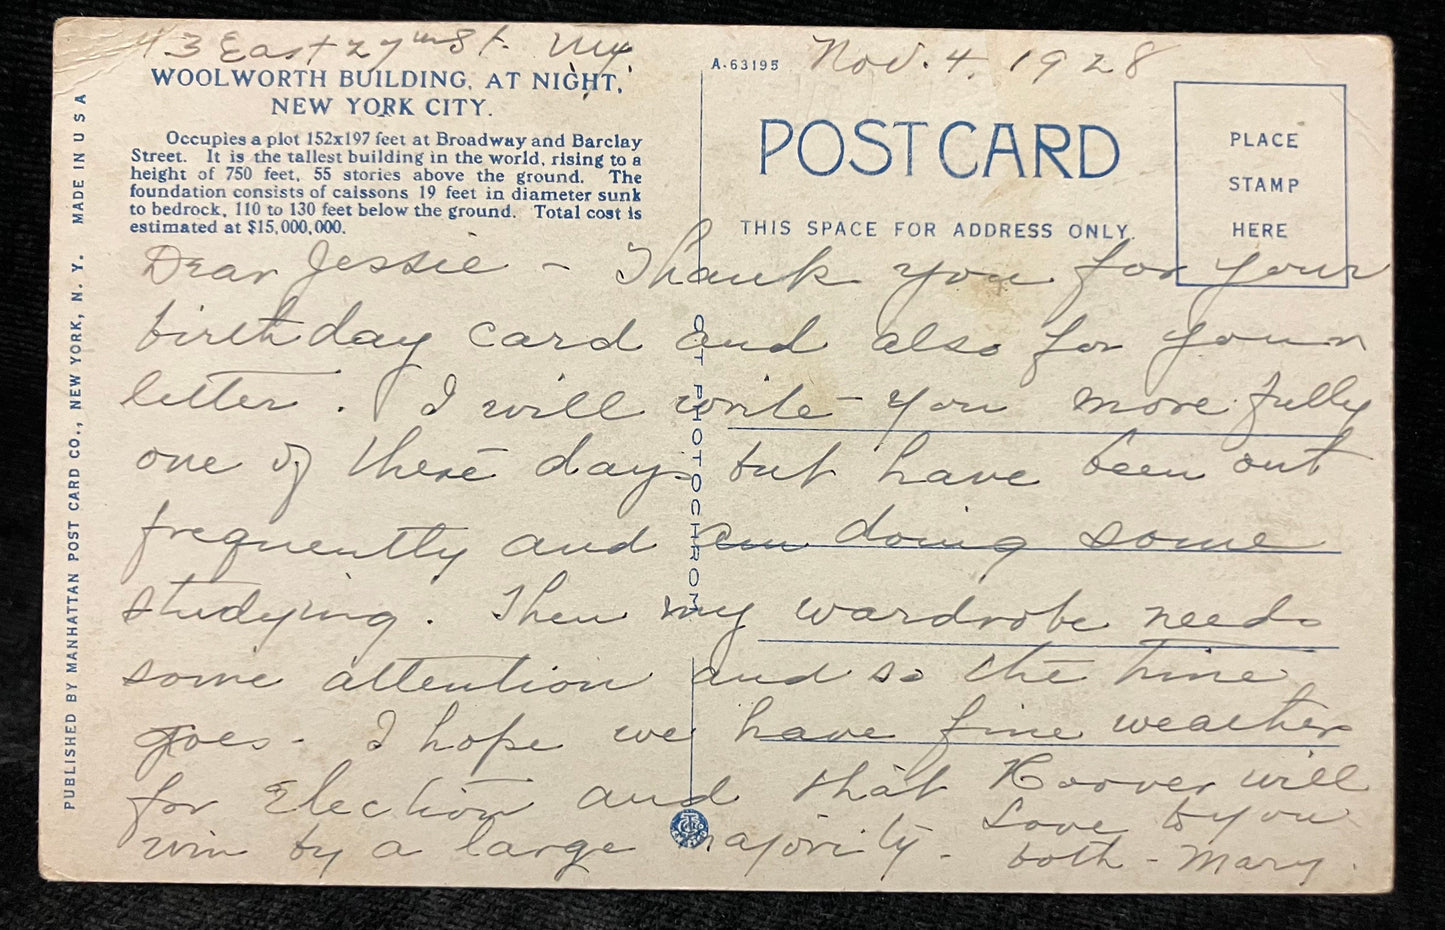 43 East 27th St. N.Y.
Nov. 4. 1928
WOOLWORTH BUILDING, AT NIGHT,
NEW YORK CITY.
Occupies a plot 152x197 feet at Broadway and Barclay
Street. It is the tallest building in the world, rising to a
height of 750 feet, 55 stories above the ground. The
foundation consists of caissons 19 feet in diameter sunk
to bedrock, 110 to 130 feet below the ground. Total cost is
estimated at $15,000,000.
A-63195
POST CARD
THIS SPACE FOR ADDRESS ONLY.
PLACE
STAMP
HERE
Dear Jessie - Thank you for your
birthday card and also for your
letter. I will write you more fully
one of these days but have been out
frequently and am doing some
studying. Then my wardrobe needs
some attention and so the time
goes - I hope we have fine weather
for Election and that Hoover will
win by a large majority -
Love to you
both - Mary.
PUBLISHED BY MANHATTAN POST CARD CO., NEW YORK, N. Y. MADE IN USA
CT PHOTOCHROM